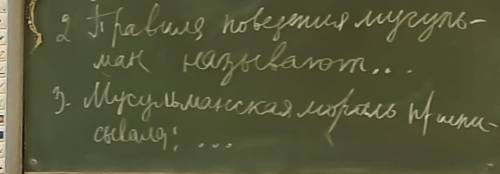 2 Правила поведения мусуль-
ман называют...
3. Мусульманская мораль предпи-
сывала: ...